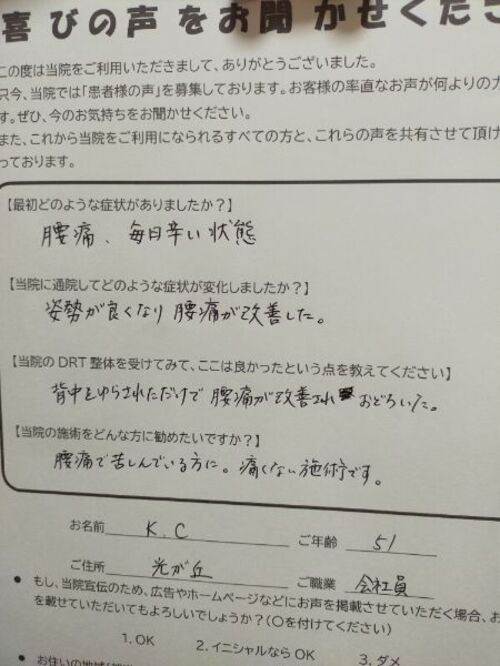 喜びの声をお聞かせくださ
この度は当院をご利用いただきまして、ありがとうございました。
只今、当院では「患者様の声」を募集しております。お客様の率直なお声が何よりの
す。ぜひ、今のお気持ちをお聞かせください。
また、これから当院をご利用になられるすべての方と、これらの声を共有させて頂け
っております。
【最初どのような症状がありましたか？】
腰痛、毎日辛い状態
【当院に通院してどのような症状が変化しましたか？】
姿勢が良くなり腰痛が改善した。
【当院のDRT整体を受けてみて、ここは良かったという点を教えてください】
背中をゆらされただけで腰痛が改善されおどろいた。
【当院の施術をどんな方に勧めたいですか？】
腰痛で苦しんでいる方に。痛くない施術です。
お名前 K.C ご年齢 51
ご住所 光が丘 ご職業 会社員
● もし、当院宣伝のため、広告やホームページなどにお声を掲載させていただく場合、お
を載せていただいてもよろしいでしょうか？（○を付けてください）
1. OK 2. イニシャルなら OK 3. ダメ
● お住いの地域